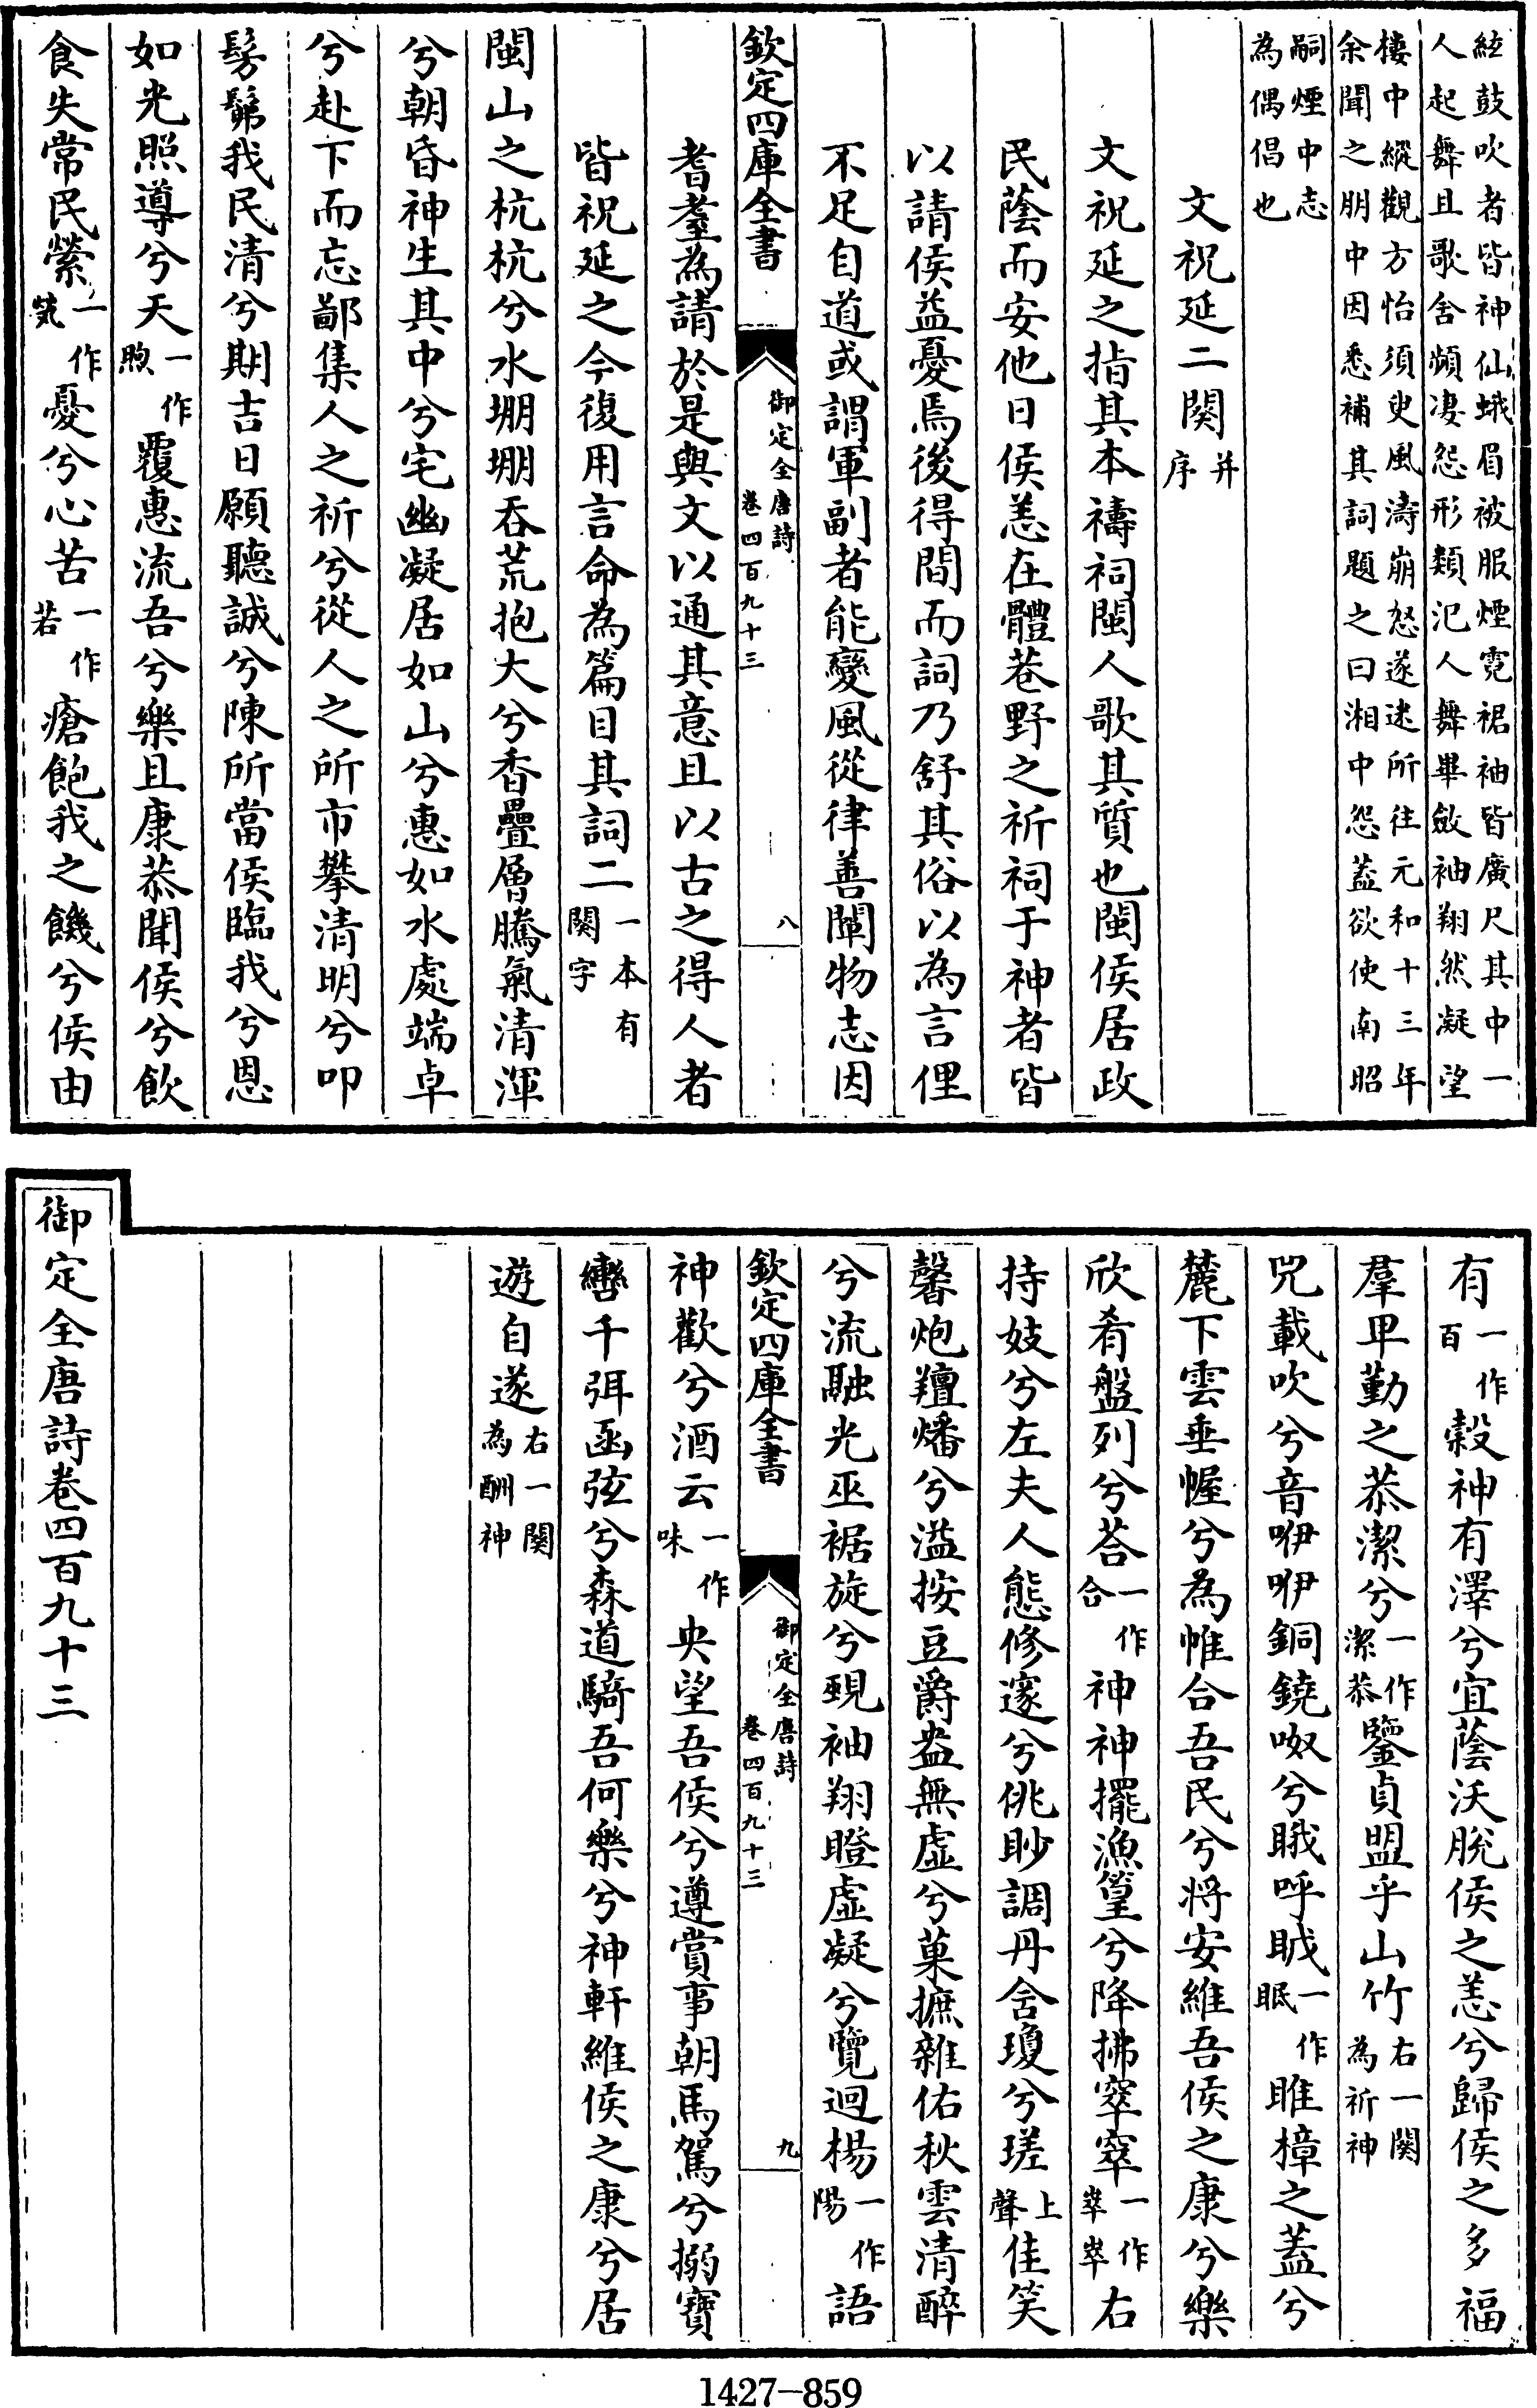 絃鼓吹者皆神仙蛾眉被服煙霓裾袖皆廣尺其中一
人起舞且歌含頻淒怨形類汜人舞畢斂袖翔然凝望
樓中縱觀方怡須臾風濤崩怒遂迷所往元和十三年
余聞之朋中因悉補其詞題之曰湘中怨蓋欲使南昭
嗣煙中志
為偶倡也
文祝延二闋并序
文祝延之指其本禱祠閩人歌其質也閩侯居政
民蔭而安他日侯恙在體巷野之祈祠于神者皆
以請侯益憂焉後得間而詞乃舒其俗以為言俚
不足自道或謂軍副者能變風從律善闡物志因
欽定四庫全書 御定全唐詩 卷四百九十三 八
耆耋為請於是與文以通其意且以古之得人者
皆祝延之今復用言命為篇目其詞二一本有闋字
閩山之杭杭兮水堋堋吞荒抱大兮香疊層騰氣清渾
兮朝昏神生其中兮宅幽凝居如山兮惠如水處端卓
兮赴下而忘鄙集人之祈兮從人之所市攀清明兮叩
髣髴我民清兮期吉日願聽誠兮陳所當侯臨我兮恩
如光照導兮天一作煦覆惠流吾兮樂且康恭聞侯兮飲
食失常民縈一作煢憂兮心苦一作若瘡飽我之饑兮侯由
有一作百穀神有澤兮宜蔭沃脫侯之恙兮歸侯之多福
羣甲勤之恭潔兮一作潔恭鑒貞盟乎山竹右一闋為祈神
咒載吹兮音咿咿銅鐃呶兮睋呼眓一作眠睢樟之蓋兮
麓下雲垂幄兮為帷合吾民兮將安維吾侯之康兮樂
欣肴盤列兮荅一作合神神擺漁篁兮降拂窣窣一作崒崒右
持妓兮左夫人態修邃兮佻眇調丹含瓊兮瑳上聲佳笑
馨炮羶燔兮溢按豆爵盎無虛兮菓摭雜佑秋雲清醉
兮流融光巫裾旋兮覡袖翔瞪虛凝兮覽迴楊一作陽語
欽定四庫全書 御定全唐詩 卷四百九十三 九
神歡兮酒云一作味央望吾侯兮遵賞事朝馬駕兮搦寶
轡千弭函弦兮森道騎吾何樂兮神軒維侯之康兮居
遊自遂右一闋為酬神
御定全唐詩卷四百九十三
1427-859